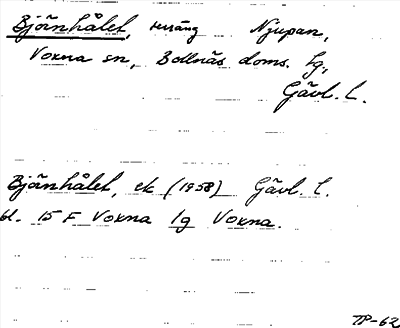 Björnhålet, utäng Njupan,
Voxna sn, Bollnäs doms. lg,
Gävl. l.
Björnhålet, ek (1958) Gävl. l.
bl. 15 F Voxna lg Voxna.
TP-62